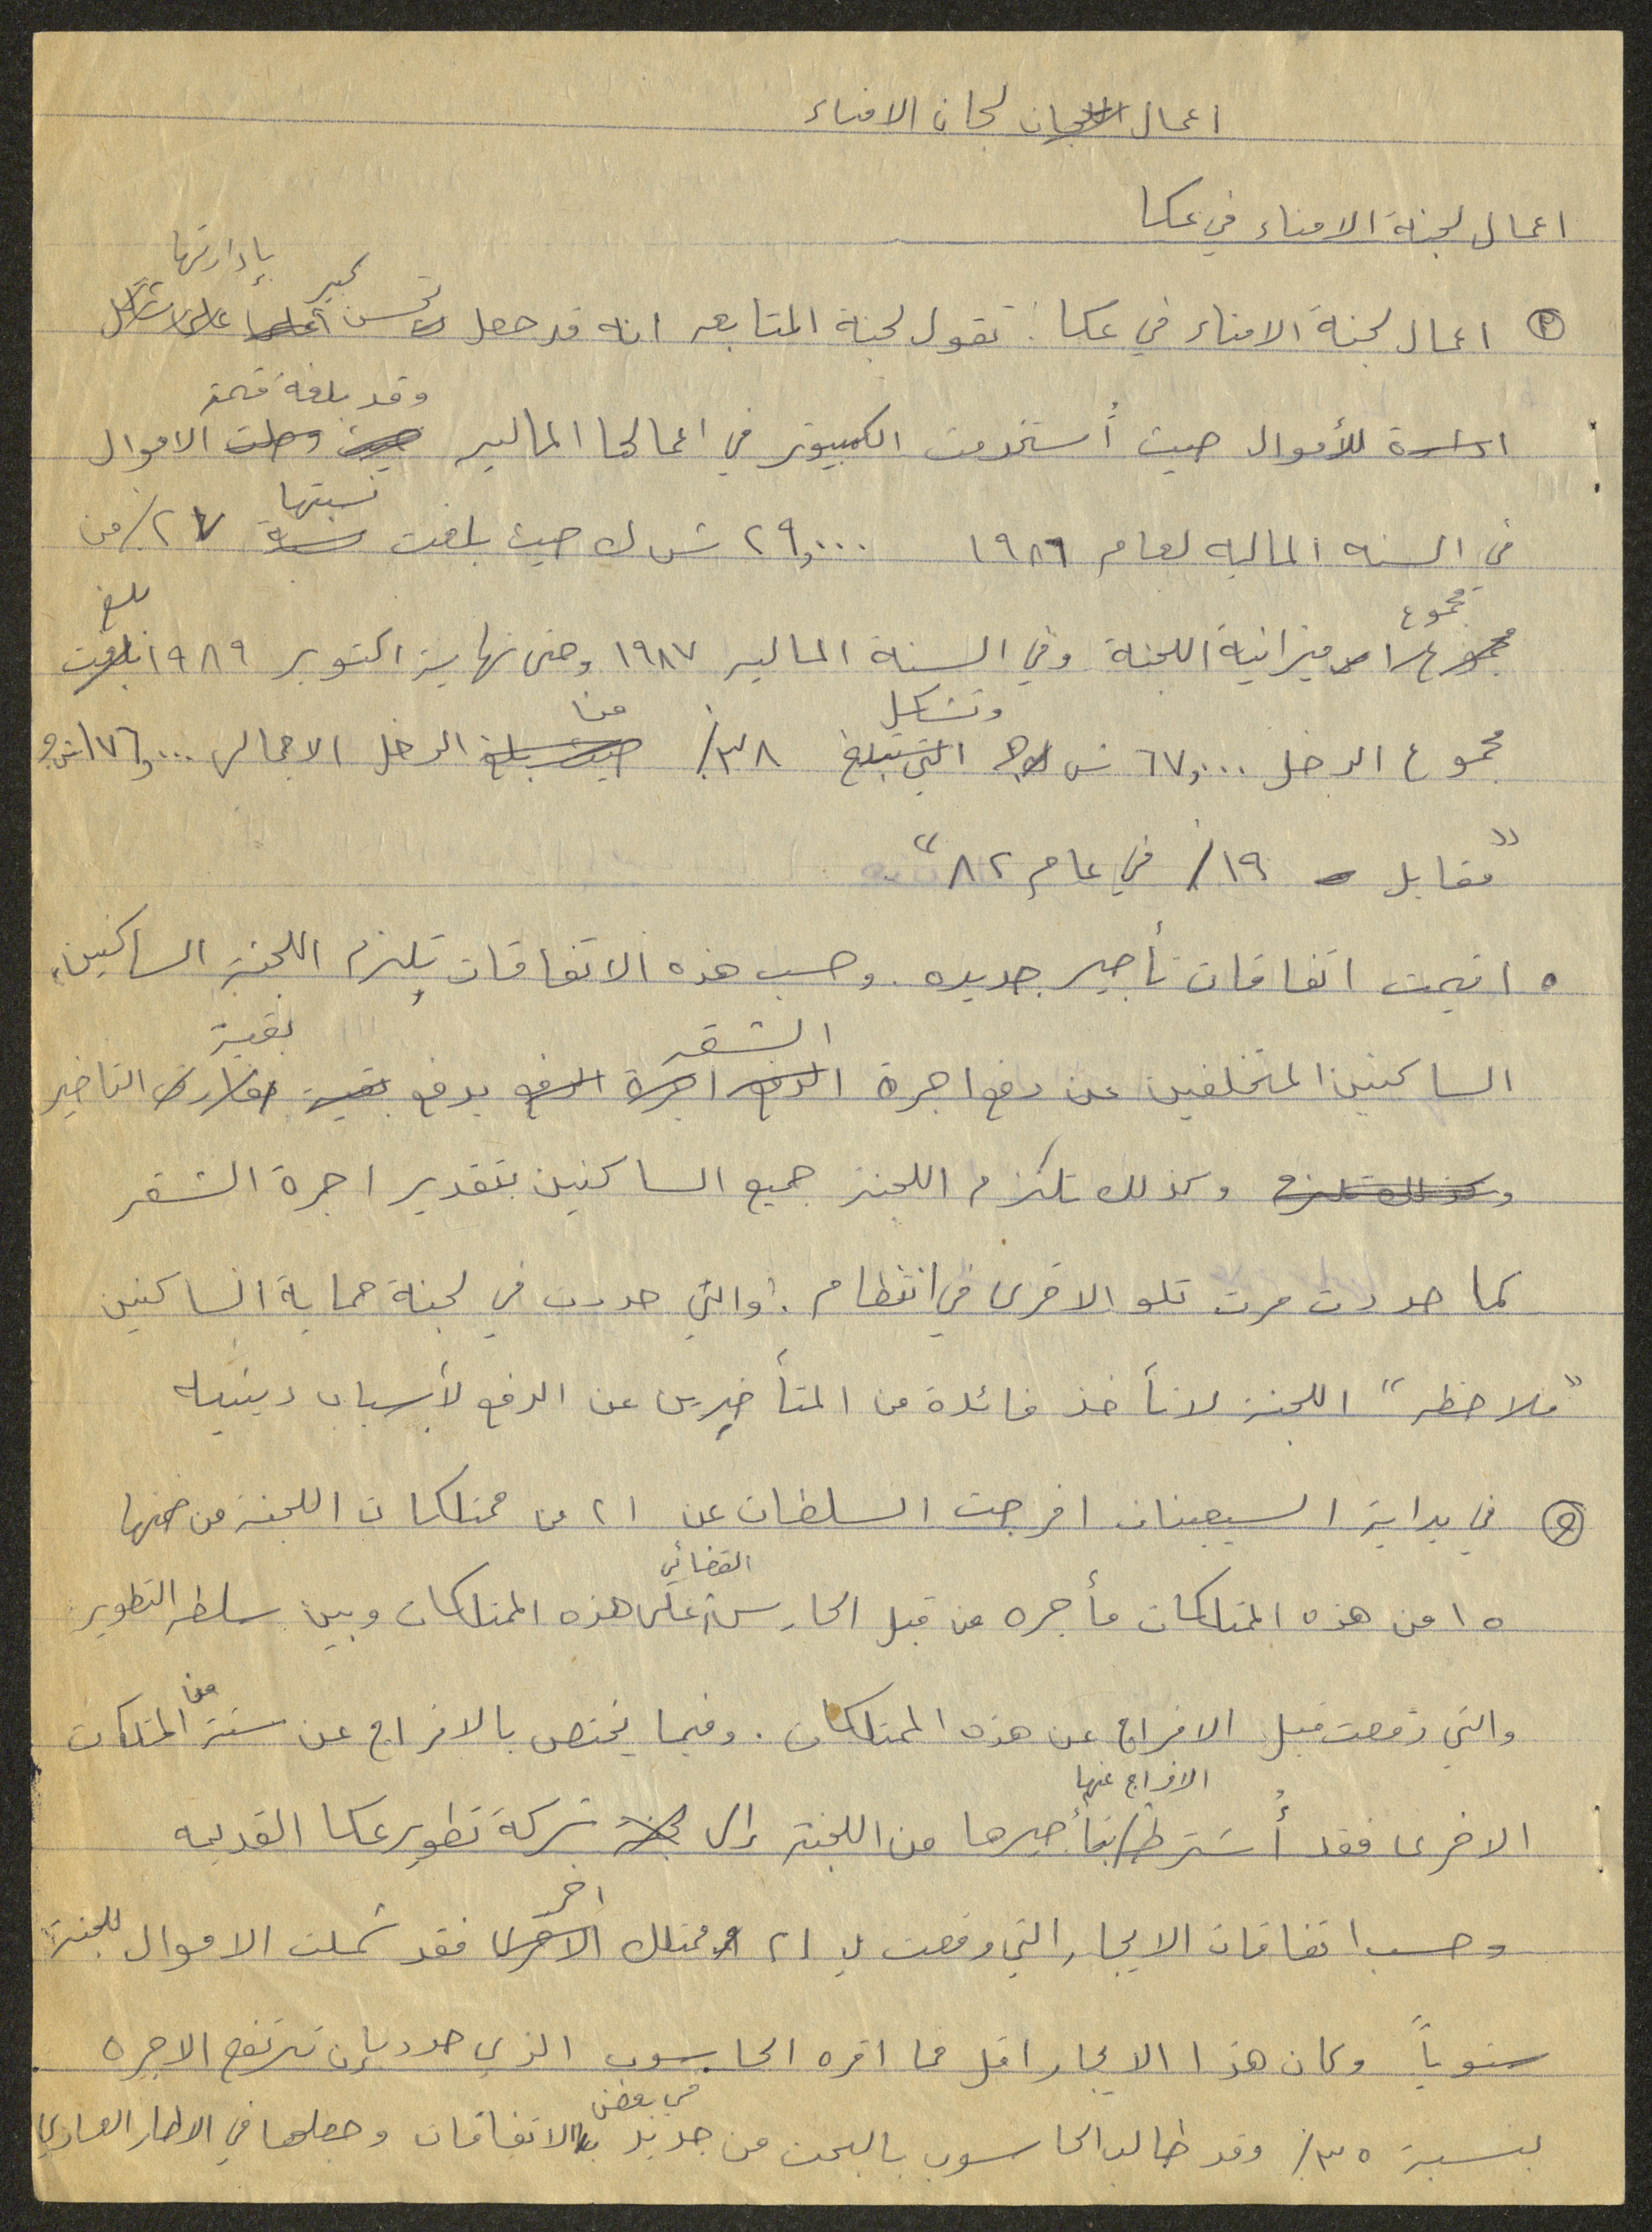 اعمال لجان الامناء
اعمال لجنة الامناء في عكا
اعمال لجنة الامناء في عكا: تقول لجنة المتابعه انه قد حصل تحسن كبير بإدارتها
للأموال حيث أُستخدمت الكمبيوتر في اعمالها الماليه وقد بلغة قيمة الاموال
في السنه الماليه لعام ١٩٨٦ ٢٩,٠٠٠ ش ك حيث بلغت نسبتها ٢٧٪ من
مجموع ميزانية اللجنة وفي السنة الماليه ١٩٨٧ وحتى نهاية اكتوبر ١٩٨٩ بلغ
مجموع الدخل ٦٧,٠٠٠ ش وتشكل ٣٨٪ من الدخل الاجمالي ١٧٦,٠٠٠ ش ج
"مقابل ١٩٪ في عام ٨٢"
٥ اقيمت اتفاقات تأجير جديده. وحسب هذه الاتفاقات تلزم اللجنة الساكنين
الساكنين المتخلفين عن دفع اجرة الشقه بدفع بقية التاخير
وكذلك تلتزم اللجنة جميع الساكنين بتقدير اجرة الشقه
كما حددت مرت تلو الاخرى في انتظام. والتي حددت في لجنة حماية الساكنين
"ملاحظه" اللجنة لا تأخذ فائدة من المتأخيرين عن الدفع لأسباب دينيه
في بداية السبعينات افرجت السلطات عن ٢١ من ممتلكات اللجنة من ضمنها
١٥ من هذه الممتلكات مأجره من قبل الحارس القضائي على هذه الممتلكات وبين سلطه التطوير
والتي وقعت قبل الافراج عن هذه الممتلكات. وفيما يختص بالافراج عن ستة من الممتلكات
الاخرى فقد أُشترط الافراج عنها بتأجيرها من اللجنة إلى شركة تطوير عكا القديمه
وحسب اتفاقات الايجار التي وقعت لـ ٢١ ممتلك اخر فقد شملت الاموال للجنة
سنوياً وكان هذا الايجار اقل مما اقره الحاسوب الذي حدد بإن ترتفع الاجره
بنسبة ٣٥٪ وقد طالب الحاسوب بالبحث من جديد في بعض الاتفاقات وجعلها في الاطار العادي